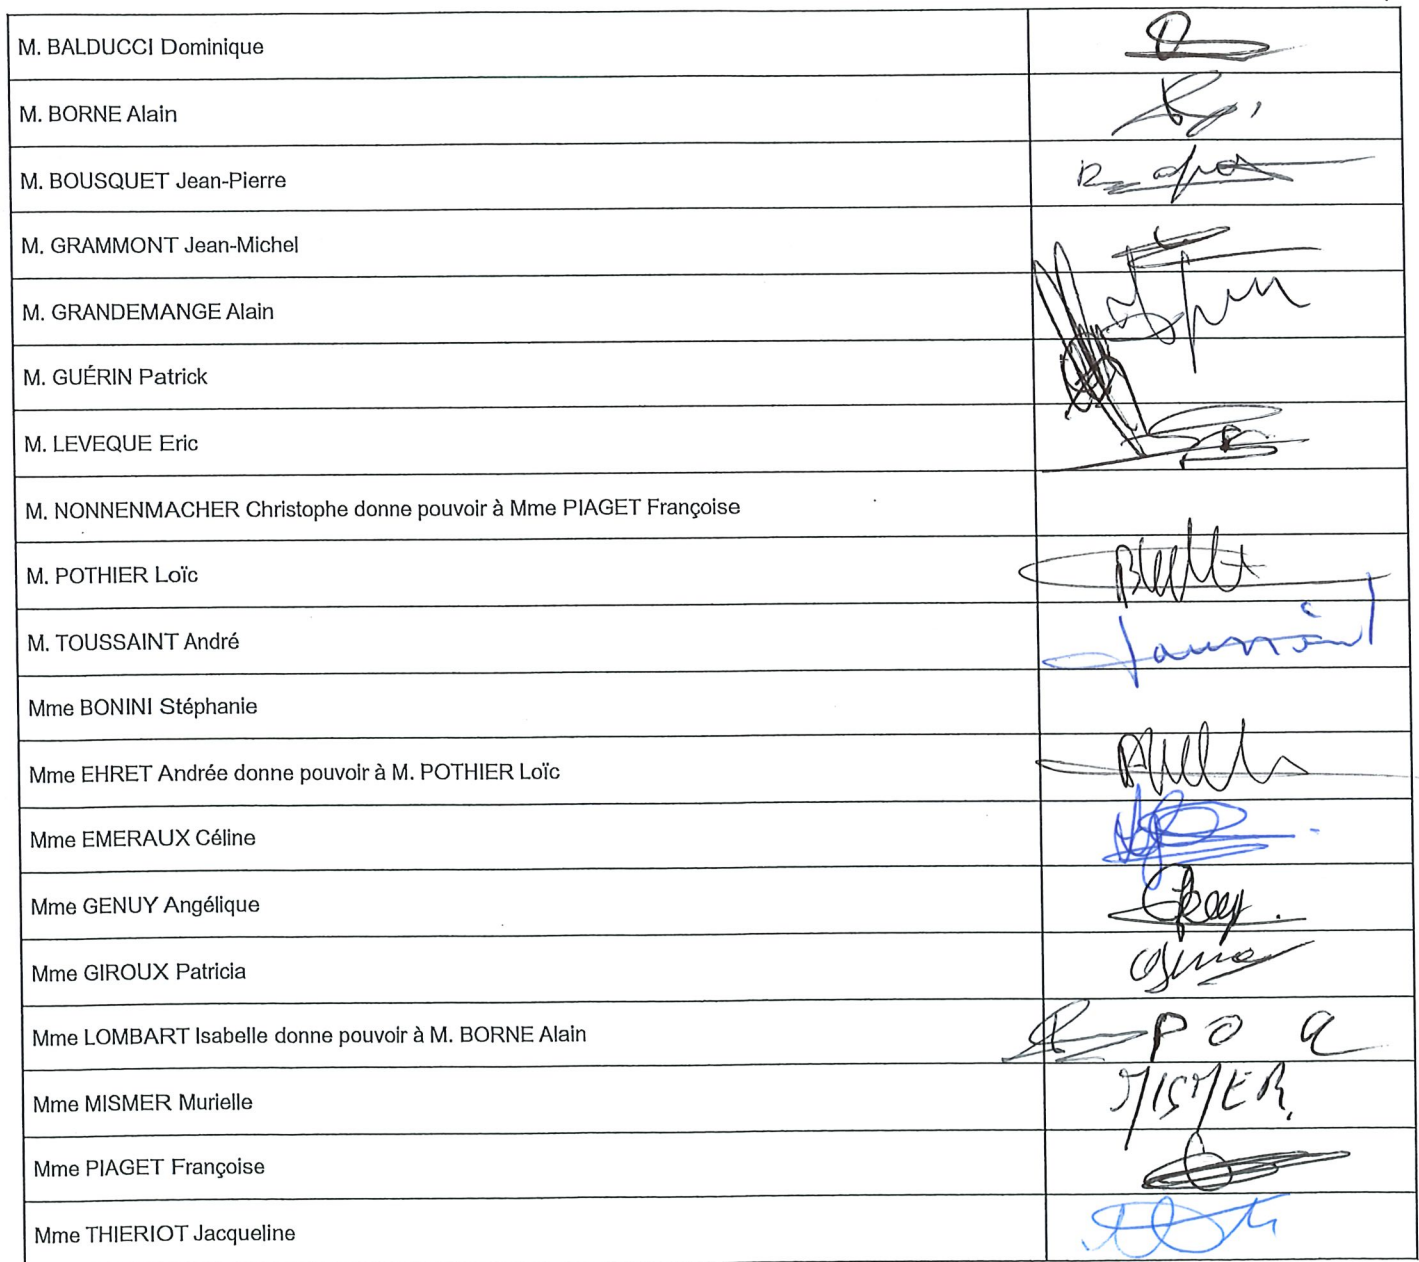 M. BALDUCCI Dominique
M. BORNE Alain
M. BOUSQUET Jean-Pierre
M. GRAMMONT Jean-Michel
M. GRANDEMANGE Alain
M. GUÉRIN Patrick
M. LEVEQUE Eric
M. NONNENMACHER Christophe donne pouvoir à Mme PIAGET Françoise
M. POTHIER Loïc
M. TOUSSAINT André
Mme BONINI Stéphanie
Mme EHRET Andrée donne pouvoir à M. POTHIER Loïc
Mme EMERAUX Céline
Mme GENUY Angélique
Mme GIROUX Patricia
Mme LOMBART Isabelle donne pouvoir à M. BORNE Alain
Mme MISMER Murielle MISMER
Mme PIAGET Françoise
Mme THIERIOT Jacqueline